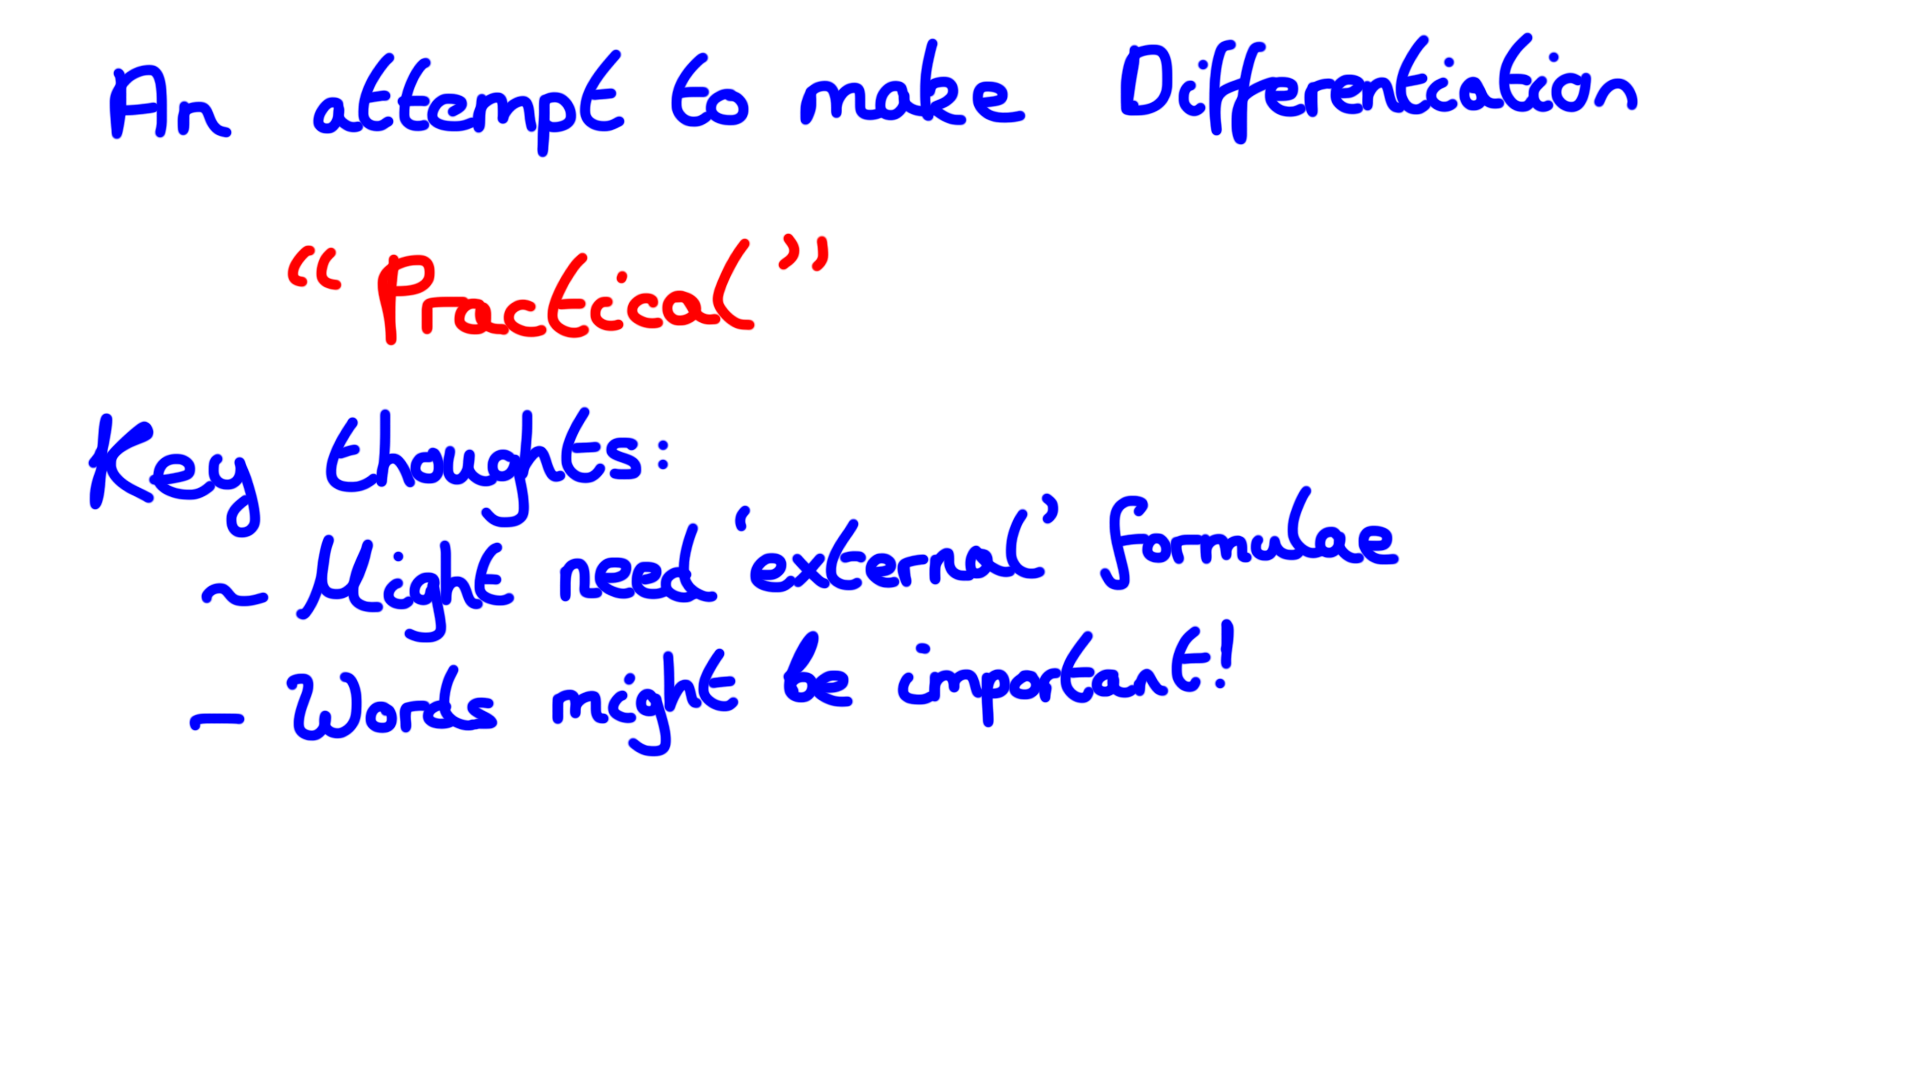 An attempt to make Differentiation
“Practical”
Key thoughts:
~ Might need ‘external’ formulae
- Words might be important!